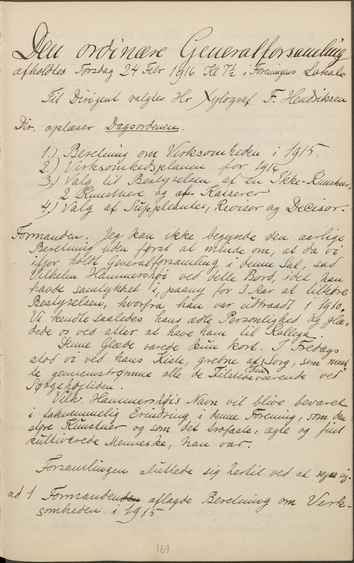 Den ordinære Generalforsamling
afholdtes Torsdag 24 Febr 1916 Kl 7½ i Foreningens Lokale
Til Dirigent valgtes Hr. Xylograf F. Hendriksen
Dir. oplæser Dagsordenen
1.) Beretning om Virksomheden i 1915.
2.) Virksomhedsplanen for 1916
3.) Valg til Bestyrelsen af en Ikke-Kunstner,
2 Kunstnere og af Kasserer
4.) Valg af Suppleanter, Revisor og Decisor.
Formanden. Jeg kan ikke begynde den aarlige
Beretning uden først at minde om, at da vi
ifjor holdt Generalforsamling i denne Sal, sad
Vilhelm Hammershøi ved dette Bord, idet han
havde samtykket i, paany for 3 Aar at tiltræde
Bestyrelsen, hvorfra han var udtraadt i 1910.
Vi kendte saaledes hans ædle Personlighed og glæ-
dede os ved atter at have ham til Kollega.
Denne Glæde varede kun kort. I Fredags
stod vi ved hans Kiste, grebne af Sorg, som
gennemstrømme alle de Tilstedeværende ved
Sørgehøjtiden.
Vilh. Hammershøis Navn vil blive bevaret
i taknemmelig Erindring i denne Forening, som den
Kunstner og som det trofaste, ægte og fint
kultiverede Menneske, han var.
Forsamlingen sluttede sig hertil ved at rejse sig.
ad 1 Formanden aflagde Beretning om Virk-
somheden i 1915
169